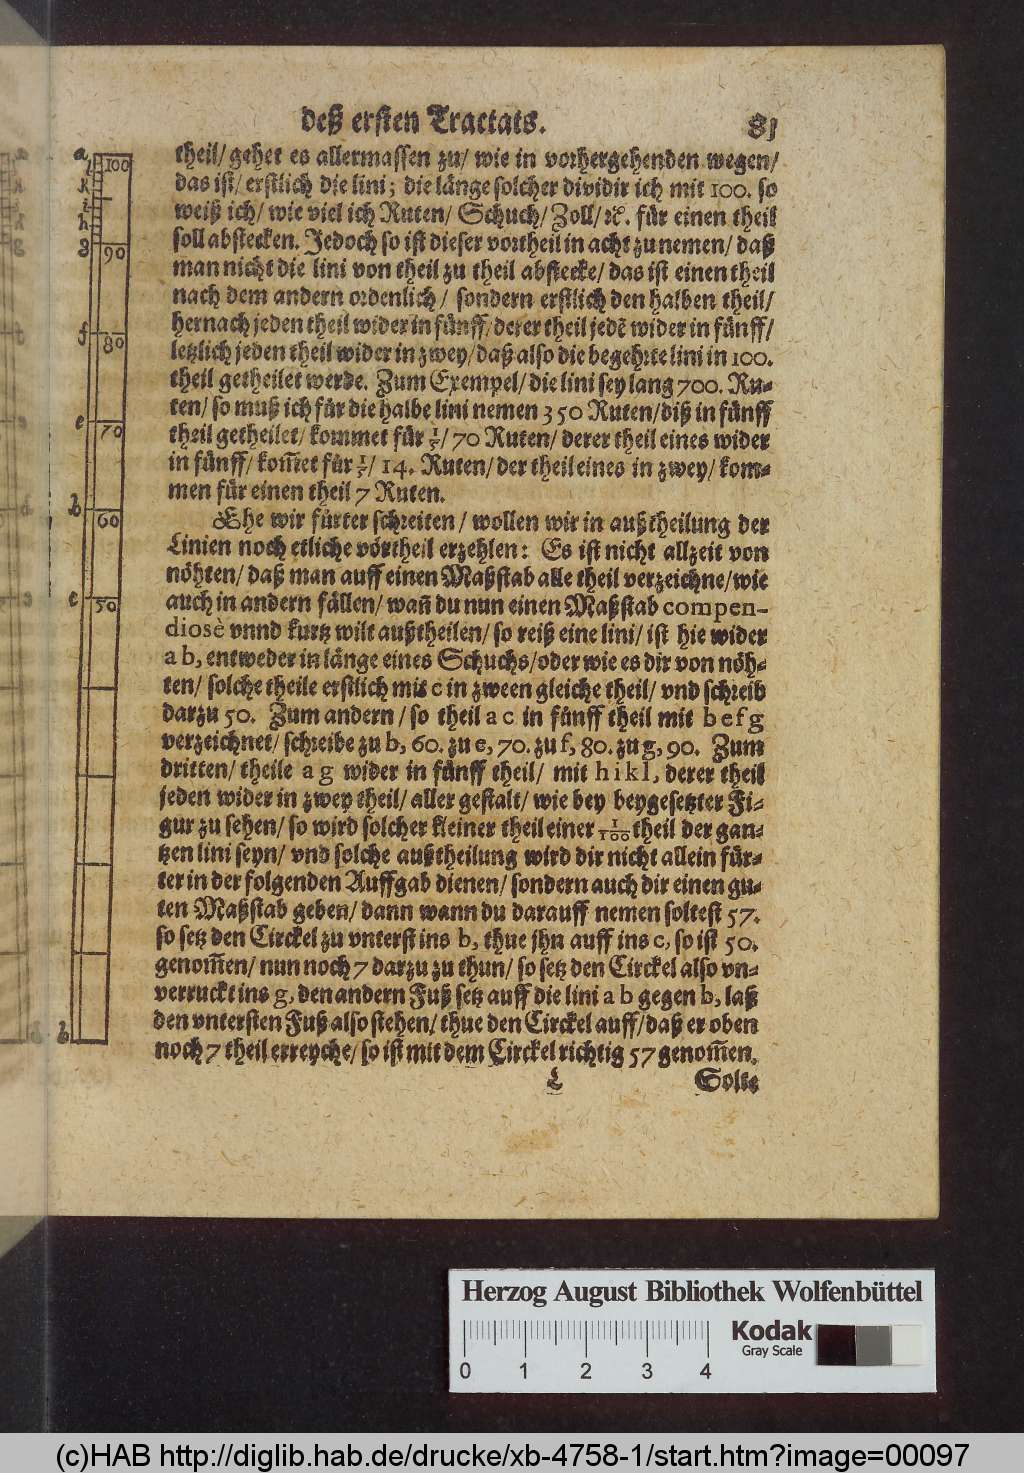 deß ersten Tractats. 81
theil/ gehet es allermassen zu/ wie in vorhergehenden wegen/
das ist/ erstlich die lini; die länge solcher dividir ich mit 100. so
weiß ich/ wie viel ich Ruten/ Schuch/ Zoll/ ꝛc. für einen theil
soll abstecken. Jedoch so ist dieser vortheil in acht zu nemen/ daß
man nicht die lini von theil zu theil abstecke/ das ist einen theil
nach dem andern ordenlich/ sondern erstlich den halben theil/
hernach jeden theil wider in fünff/ derer theil jedē wider in fünff/
letzlich jeden theil wider in zwey/ daß also die begehrte lini in 100.
theil getheilet werde. Zum Exempel/ die lini sey lang 700. Ru-
ten/ so muß ich für die halbe lini nemen 350 Ruten/ diß in fünff
theil getheilet/ kommet für 1/5/ 70 Ruten/ derer theil eines wider
in fünff/ kom̄et für 1/5/ 14. Ruten/ der theil eines in zwey/ kom-
men für einen theil 7 Ruten.
Ehe wir fürter schreiten/ wollen wir in außtheilung der
Linien noch etliche vörtheil erzehlen: Es ist nicht allzeit von
nöhten/ daß man auff einen Maßstab alle theil verzeichne/ wie
auch in andern fällen/ wañ du nun einen Maßstab compen-
diosè vnnd kurtz wilt außtheilen/ so reiß eine lini/ ist hie wider
a b, entweder in länge eines Schuchs/ oder wie es dir von nöh-
ten/ solche theile erstlich mit c in zween gleiche theil/ vnd schreib
darzu 50. Zum andern/ so theil a c in fünff theil mit b e f g
verzeichnet/ schreibe zu b, 60. zu e, 70. zu f, 80. zu g, 90. Zum
dritten/ theile a g wider in fünff theil/ mit h i k l, derer theil
jeden wider in zwey theil/ aller gestalt/ wie bey beygesetzter Fi-
gur zu sehen/ so wird solcher kleiner theil einer 1/100 theil der gan-
tzen lini seyn/ vnd solche außtheilung wird dir nicht allein für-
ter in der folgenden Auffgab dienen/ sondern auch dir einen gu-
ten Maßstab geben/ dann wann du darauff nemen soltest 57.
so setz den Circkel zu vnterst ins b, thue jhn auff ins c, so ist 50.
genom̄en/ nun noch 7 darzu zu thun/ so setz den Circkel also vn-
verruckt ins g, den andern Fuß setz auff die lini a b gegen b, laß
den vntersten Fuß also stehen/ thue den Circkel auff/ daß er oben
noch 7 theil erreyche/ so ist mit dem Circkel richtig 57 genom̄en.
L Solte
a
l 100
k
i
h
g 90
f 80
e 70
b 60
c 50
b
Herzog August Bibliothek Wolfenbüttel
0 1 2 3 4
Kodak
Gray Scale
(c)HAB http://diglib.hab.de/drucke/xb-4758-1/start.htm?image=00097